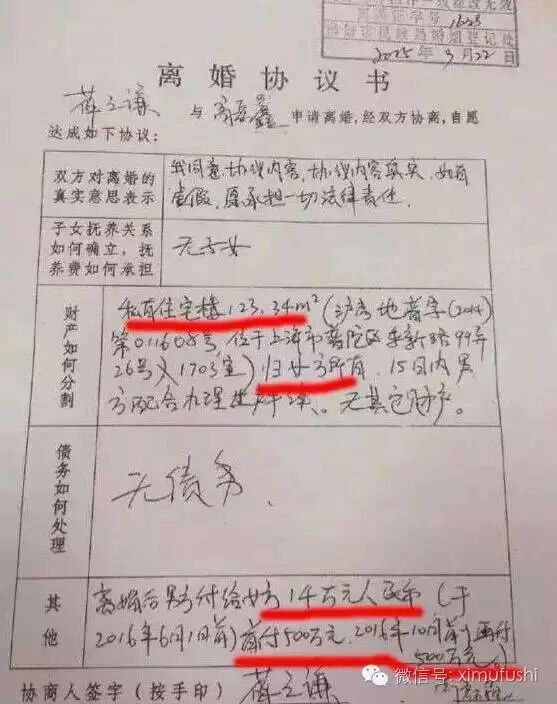 登记字号 1623
婚姻登记处
2015年9月22日
离婚协议书
薛之谦 与 高磊鑫 申请离婚,经双方协商,自愿
达成如下协议:
双方对离婚的
真实意思表示
我同意协议内容,协议内容真实,如有
虚假,愿承担一切法律责任.
子女抚养关系
如何确立,抚
养费如何承担
无子女
财产如何分割
私有住宅楼123.34m²(沪房地普字(2014)
第011608号,位于上海市普陀区 新路99弄
26号 1703室)归女方所有,15日内男
方配合办理过户手续。无其它财产。
债务如何处理
无债务.
其他
离婚后男方付给女方 1千万元人民币(于
2016年6月1日前)首付500万元,2016年10月前 再付
500万元)
协商人签字(按手印) 薛之谦
微信号: ximufushi